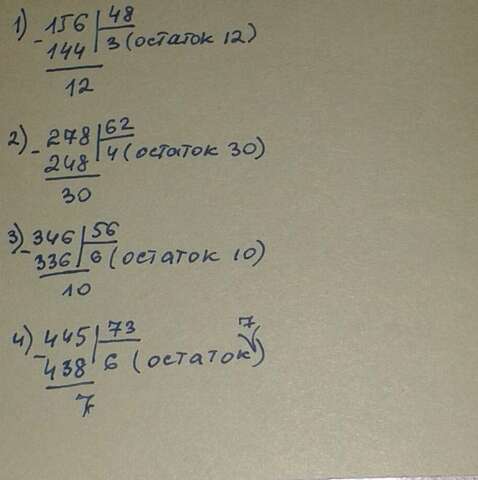 1) -156 | 48
144 | 3 (остаток 12)
12
2) -278 | 62
248 | 4 (остаток 30)
30
3) -346 | 56
336 | 6 (остаток 10)
10
4) -445 | 73
438 | 6 (остаток 7)
7